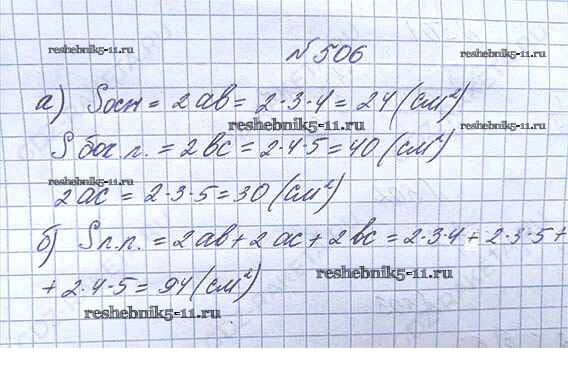 № 506
reshebnik5-11.ru
reshebnik5-11.ru
а) Sосн = 2ab = 2·3·4 = 24 (см²)
reshebnik5-11.ru
Sбок.п. = 2bc = 2·4·5 = 40 (см²)
reshebnik5-11.ru
2ac = 2·3·5 = 30 (см²)
б) Sп.п. = 2ab + 2ac + 2bc = 2·3·4 + 2·3·5 +
+ 2·4·5 = 94 (см²)
reshebnik5-11.ru
reshebnik5-11.ru